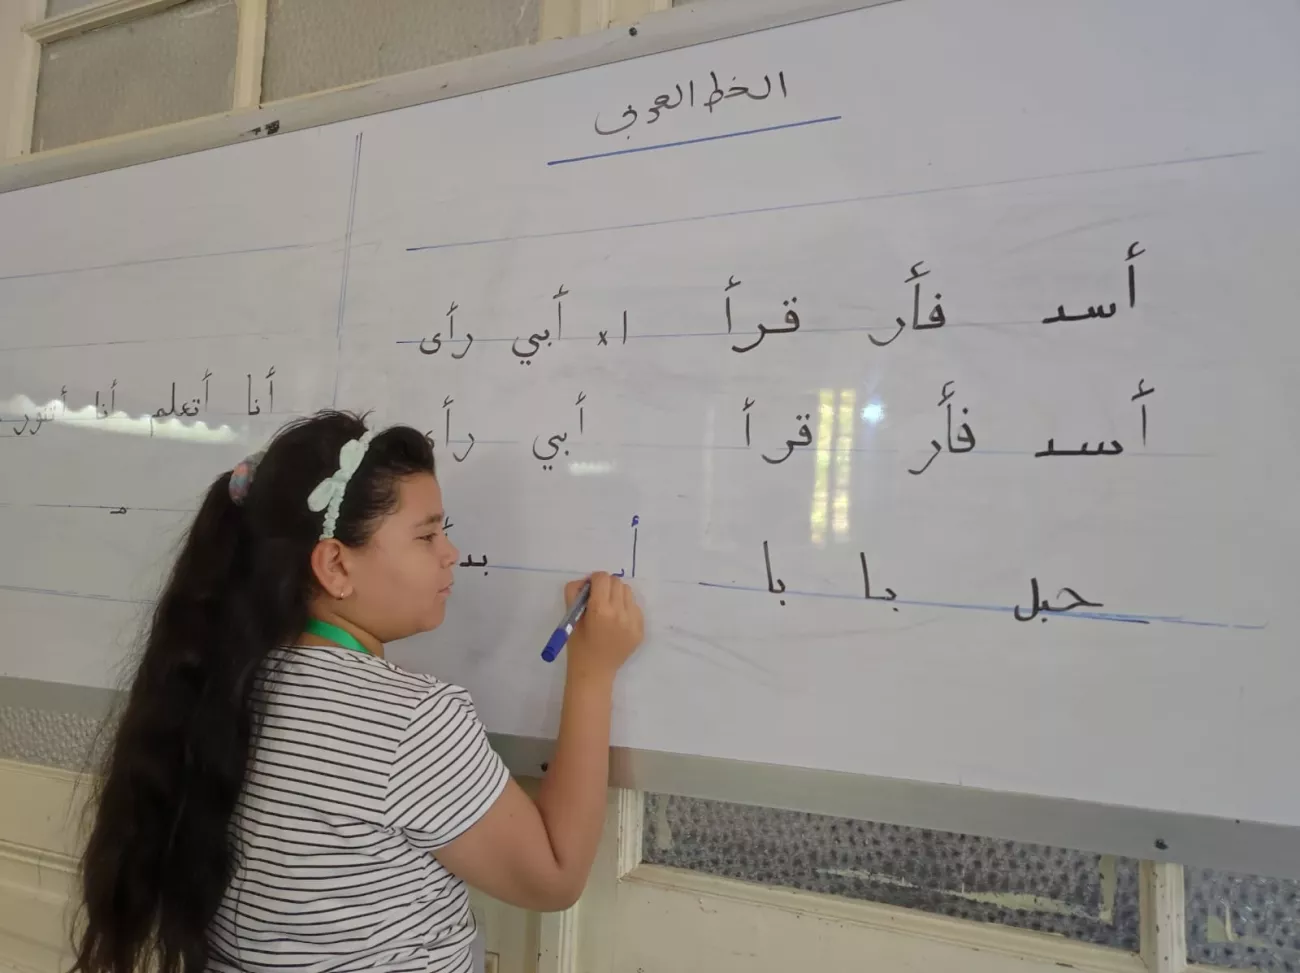 الخط العربي
أسد فأر قرأ ا × أبي رأى
أسد فأر قرأ أبي رأى
حبل با با أبـ بدأ
أنا أتعلم أنا أتنور